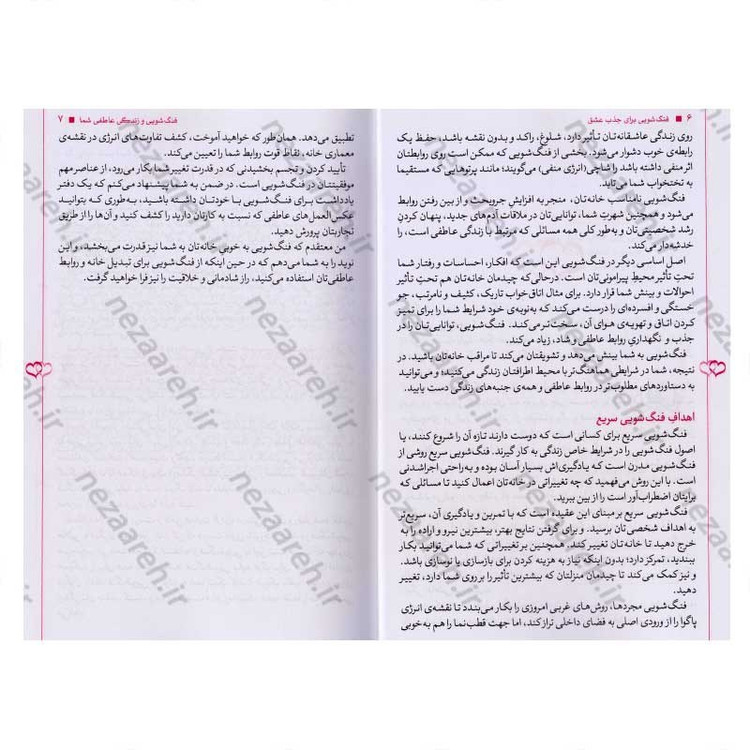 ۶ ■ فنگ‌شویی برای جذب عشق
روی زندگی عاشقانه‌تان تأثیر دارد، شلوغ، راکد و بدون نقشه باشد، حفظ یک
رابطه‌ی خوب دشوار می‌شود. بخشی از فنگ‌شویی که ممکن است روی روابطتان
اثر منفی داشته باشد را شاچی (انرژی منفی) می‌گویند؛ مانند پرتوهایی که مستقیما
به تختخواب شما می‌تابد.
فنگ‌شویی نامناسب خانه‌تان، منجر به افزایش جروبحث و از بین رفتن روابط
می‌شود و همچنین شهرتِ شما، توانایی‌تان در ملاقات آدم‌های جدید، پنهان کردن
رشد شخصیتی‌تان و به‌طور کلی همه مسائلی که مرتبط با زندگی عاطفی است، را
خدشه‌دار می‌کند.
اصل اساسی دیگر در فنگ‌شویی این است که افکار، احساسات و رفتار شما
تحتِ تأثیر محیطِ پیرامونی‌تان است. درحالی‌که چیدمان خانه‌تان هم تحتِ تأثیر
احوالات و بینش شما قرار دارد. برای مثال اتاق‌خواب تاریک، کثیف و نامرتب، جو
خستگی و افسرده‌ای را درست می‌کند که به‌نوبه‌ی خود شرایط شما را برای تمیز
کردن اتاق و تهویه‌ی هوای آن، سخت‌تر می‌کند. فنگ‌شویی، توانایی‌تان را در
جذب و نگهداری روابط عاطفی و شاد، زیاد می‌کند.
فنگ‌شویی به شما بینش می‌دهد و تشویقتان می‌کند تا مراقب خانه‌تان باشید. در
نتیجه، شما در شرایطی هماهنگ‌تر با محیط اطرافتان زندگی می‌کنید؛ و می‌توانید
به دستاوردهای مطلوب‌تر در روابط عاطفی و همه‌ی جنبه‌های زندگی دست یابید.
اهداف فنگ‌شویی سریع
فنگ‌شویی سریع برای کسانی است که دوست دارند تازه آن را شروع کنند، یا
اصول فنگ‌شویی را در شرایط خاص زندگی به کار گیرند. فنگ‌شویی سریع روشی از
فنگ‌شویی مدرن است که یادگیری‌اش بسیار آسان بوده و به‌راحتی اجراشدنی
است. با این روش می‌فهمید که چه تغییراتی در خانه‌تان اعمال کنید تا مسائلی که
برایتان اضطراب‌آور است را از بین ببرید.
فنگ‌شویی سریع بر مبنای این عقیده است که با تمرین و یادگیری آن، سریع‌تر
به اهداف شخصی‌تان برسید. و برای گرفتن نتایج بهتر، بیشترین نیرو و اراده را به
خرج دهید تا خانه‌تان تغییر کند، همچنین بر تغییراتی که شما می‌توانید بکار
ببندید، تمرکز دارد؛ بدون اینکه نیاز به هزینه کردن برای بازسازی یا نوسازی باشد.
و نیز کمک می‌کند تا چیدمان منزلتان که بیشترین تأثیر را بر روی شما دارد، تغییر
دهید.
فنگ‌شویی مجردها، روش‌های غربی امروزی را بکار می‌بندد تا نقشه‌ی انرژی
پاگوا را از ورودی اصلی به فضای داخلی تراز کند، اما جهت قطب‌نما را هم به‌خوبی
فنگ‌شویی و زندگی عاطفی شما ■ ۷
تطبیق می‌دهد. همان‌طور که خواهید آموخت، کشف تفاوت‌های انرژی در نقشه‌ی
معماری خانه، نقاط قوت روابط شما را تعیین می‌کند.
تأیید کردن و تجسم بخشیدنی که در قدرت تغییر شما بکار می‌رود، از عناصر مهم
موفقیتتان در فنگ‌شویی است. در ضمن به شما پیشنهاد می‌کنم که یک دفتر
یادداشت برای فنگ‌شویی با خودتان داشته باشید، به‌طوری که بتوانید
عکس‌العمل‌های عاطفی که نسبت به کارتان دارید را کشف کنید و آن‌ها را از طریق
تجاربتان پرورش دهید.
من معتقدم که فنگ‌شویی به خوبی خانه‌تان به شما نیز قدرت می‌بخشد، و این
نوید را به شما می‌دهم که در حین اینکه از فنگ‌شویی برای تبدیل خانه و روابط
عاطفی‌تان استفاده می‌کنید، راز شادمانی و خلاقیت را نیز فرا خواهید گرفت.
nezaareh.ir